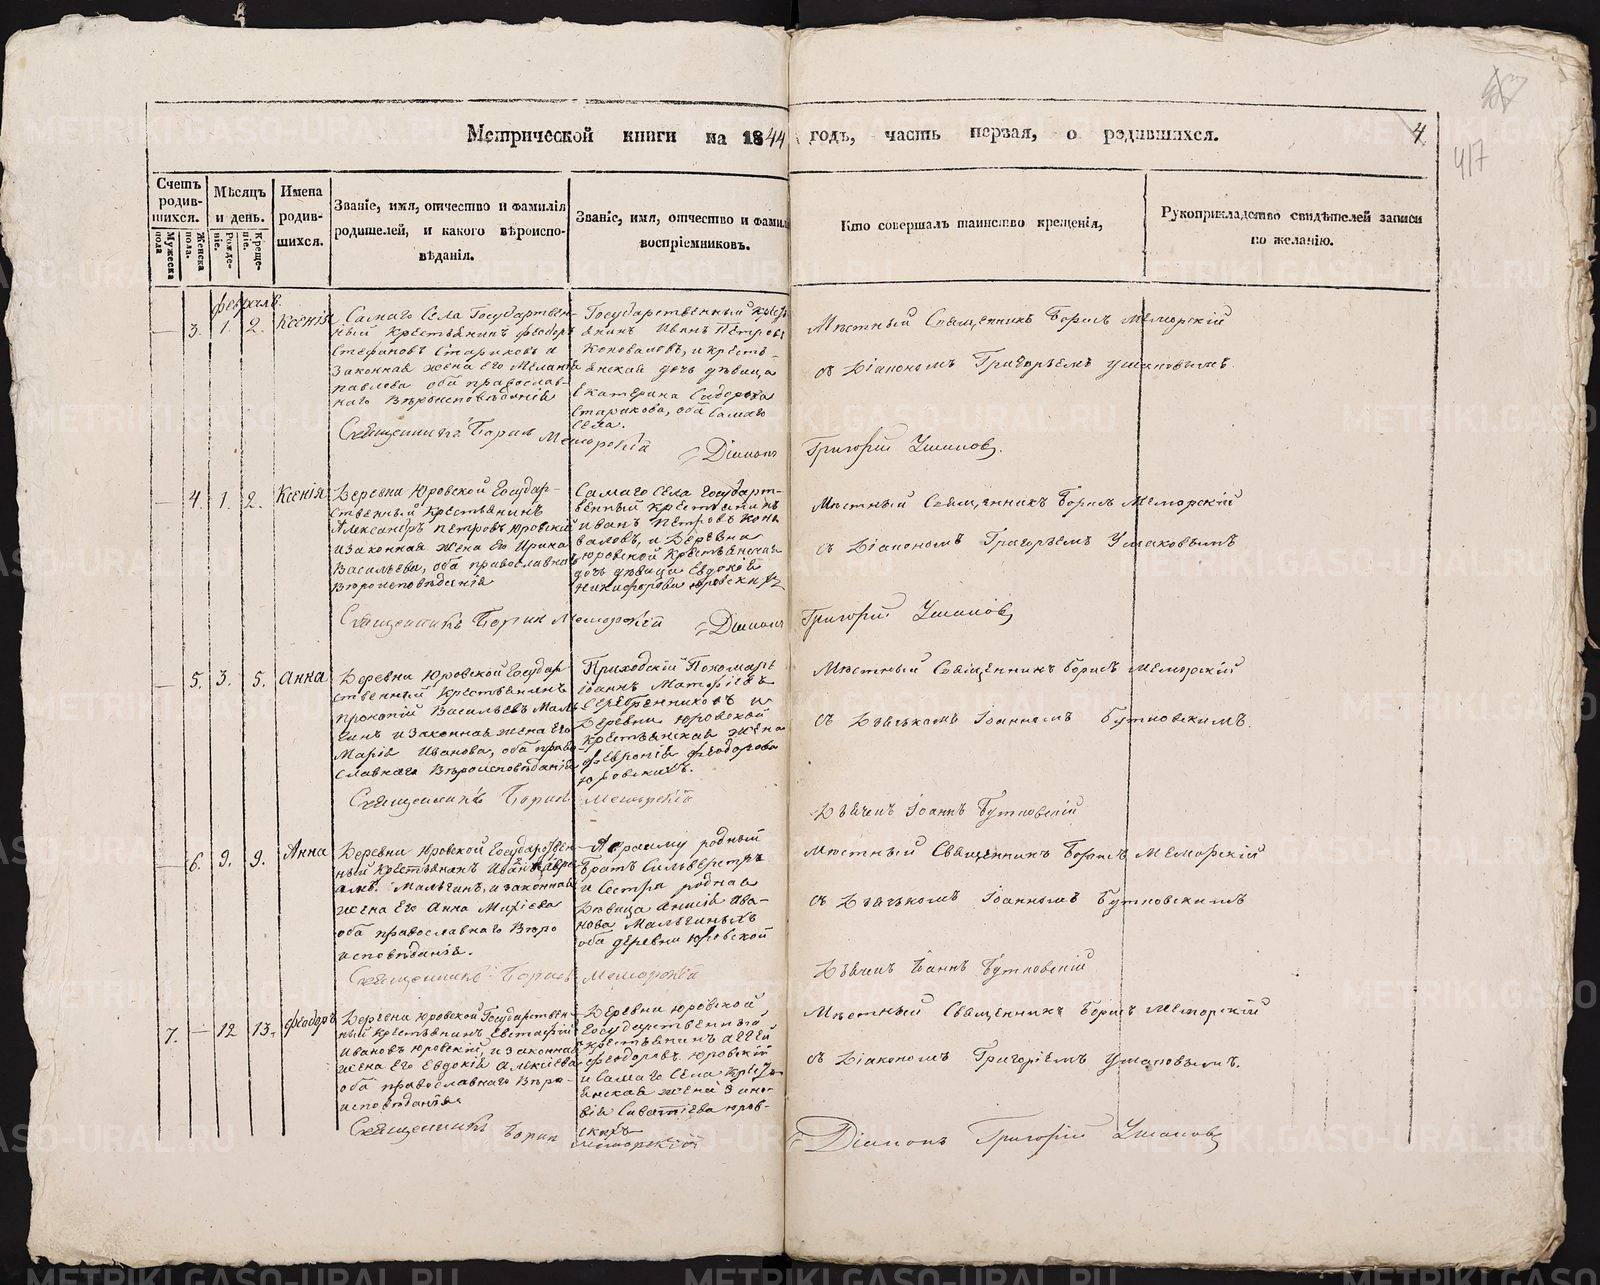 Метрической книги на 1844 годъ, часть первая, о родившихся.
4
417
Счетъ родив-
шихся.
Мужеска пола
Женска пола.
Мѣсяцъ
и день.
Рожде-
ніе.
Креще-
ніе.
Имена
родив-
шихся.
Званіе, имя, отчество и фамилія
родителей, и какого вѣроиспо-
вѣданія.
Званіе, имя, отчество и фамилі
воспріемниковъ.
Кто совершалъ таинство крещенія,
Рукоприкладство свидѣтелей записи
по желанію.
февраль.
— 3. 1. 2. Ксенія
Самаго Села Государствен-
ный крестьянинъ Феодоръ
Стефановъ Стариковъ и
Законная жена его Меланія
Павлова оба православ-
наго Вѣроисповѣданія
Государственный крест
янинъ Иванъ Петровъ
Коноваловъ, и кресть-
янская дочь дѣвица
Екатерина Сидорова
Старикова, оба самаго
села.
Мѣстный Священникъ Борисъ Меморскій
съ Діакономъ Григорьемъ Ушаковымъ.
Священникъ Борис Меморскій
Діаконъ Григорій Ушаковъ.
— 4. 1. 2. Ксенія
Деревни Юровской Государ-
ственный крестьянинъ
Александръ Петровъ Юровскій
и законная жена его Ирина
Васильева, оба православнаго
Вѣроисповѣданія
Самаго села Государст-
венный крестьянинъ
Иванъ Петровъ Коно
валовъ, и Деревни
Юровской крестьянская
дочь дѣвица Евдокія
Никифорова Юровскихъ
Мѣстный Священникъ Борисъ Меморскій
съ Діакономъ Григорьемъ Ушаковымъ
Священникъ Борис Меморскій
Діаконъ Григорій Ушаковъ
— 5. 3. 5. Анна
Деревни Юровской Государ
ственный крестьянинъ
Прокопій Васильевъ Маль
гинъ и законная жена его
Марія Иванова, оба право
славнаго Вѣроисповѣданія
Приходскій Пономарь
Іоаннъ Матфіевъ
Серебренниковъ и
Деревни Юровской
крестьянская жена
Февронія Феодорова
Юровскихъ.
Мѣстный Священникъ Борисъ Меморскій
съ Дьячькомъ Іоанномъ Бутковскимъ.
Священникъ Борисъ Меморскій
Дьячекъ Іоаннъ Бутковскій
— 6. 9. 9. Анна
Деревни Юровской Государствен
ный крестьянинъ Иванъ
Мальгинъ, и законная
жена его Анна Михіева
оба православнаго Вѣро
исповѣданія.
родный
Братъ Сильвестръ
и Сестра родная
Дѣвица Анисія Ива-
нова Мальгиныхъ
оба деревни Юровской
Мѣстный Священникъ Борисъ Меморскій
съ Дьячькомъ Іоанномъ Бутковскимъ
Священникъ Борисъ Меморскій
Дьячекъ Іоаннъ Бутковскій
7. — 12 13. Феодоръ
Деревни Юровской Государствен-
ный крестьянинъ Евстафій
Ивановъ Юровскій, и законная
жена его Евдокія Алексіева
оба православнаго Вѣро-
исповѣданія
Деревни Юровской
Государственный
крестьянинъ
Феодоровъ Юровскій
и самаго села крест
янская жена Зино-
вія Саватіева Юров-
скихъ
Мѣстный Священникъ Борисъ Меморскій
съ Діакономъ Григоріемъ Ушаковымъ.
Священникъ Борис Меморскій
Діаконъ Григорій Ушаковъ
METRIKI.GASO-URAL.RU